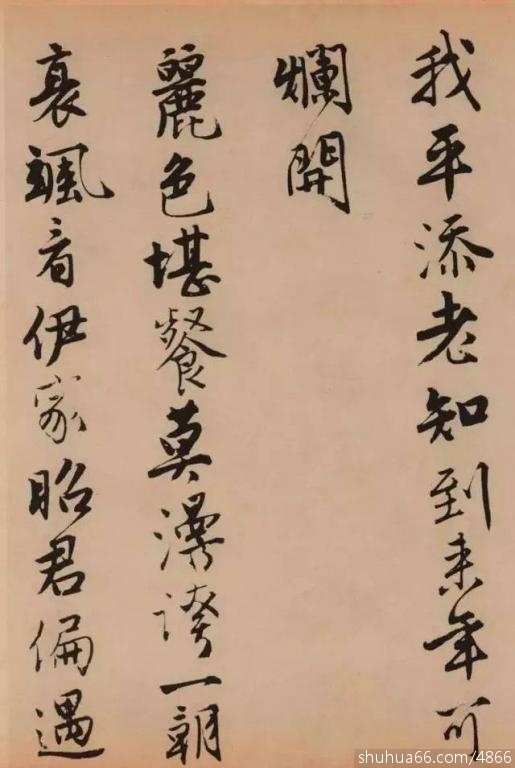 我平添老知到来年可
爛開
麗色堪餐莫漫誇一朝
衰颯看伊家昭君偏遇
shuhua66.com/4866